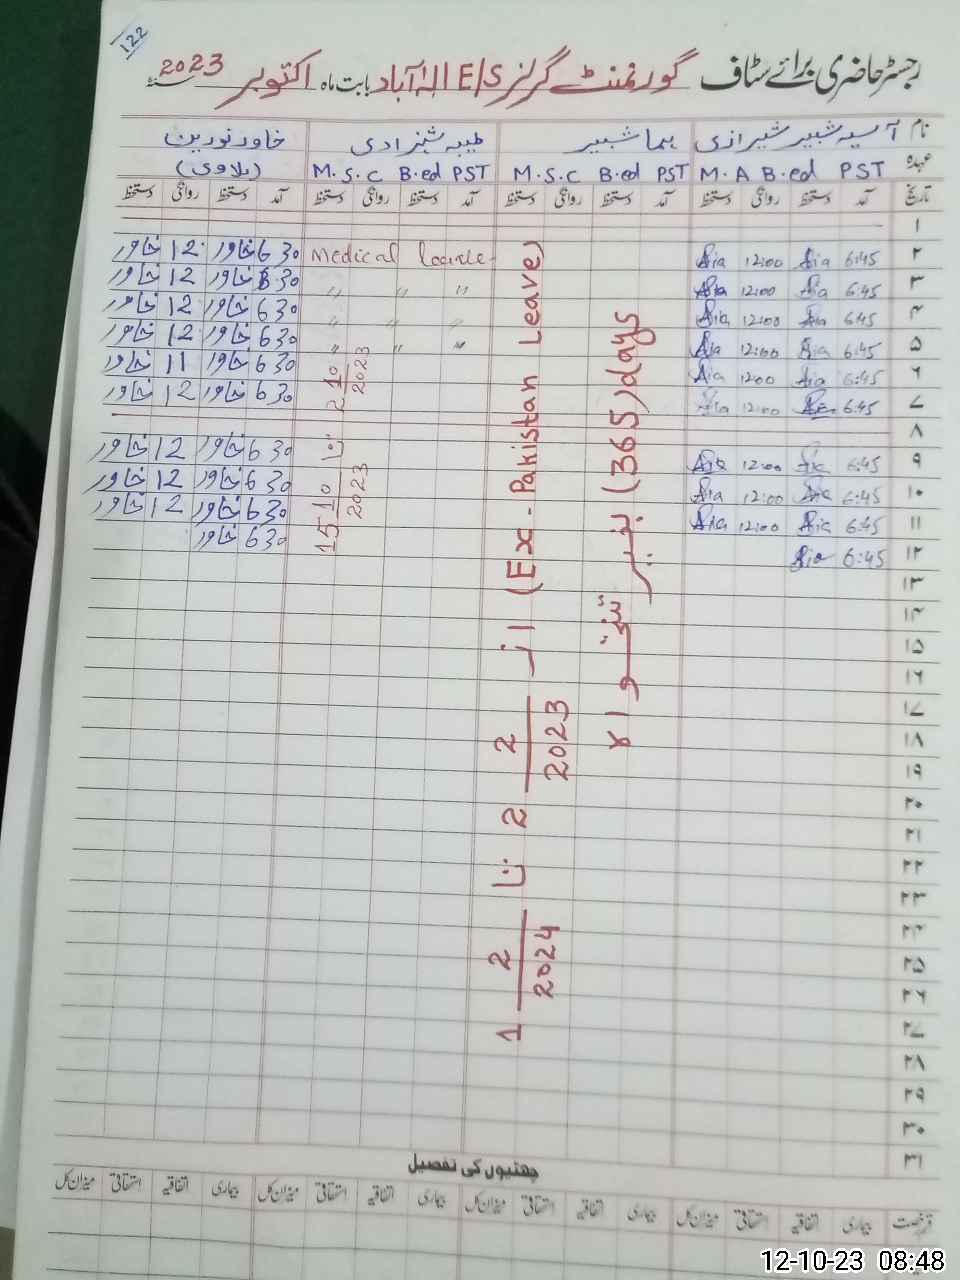 122
رجسٹر حاضری برائے سٹاف گورنمنٹ گرلز E/S الہٰ آباد بابت ماہ اکتوبر 2023 سنہ
نام آسیہ شبیر شیرازی ہما شبیر طیبہ شہزادی خاور نورین
عہدہ M.A B.ed PST M.S.C B.ed PST M.S.C B.ed PST (بلاوی)
تاریخ آمد دستخط روانگی دستخط آمد دستخط روانگی دستخط آمد دستخط روانگی دستخط آمد دستخط روانگی دستخط
۱
۲ 6:45 Asia 12:00 Asia Medical leave 6 30 خاور 12 خاور
۳ 6:45 Asia 12:00 Asia " " " 6 30 خاور 12 خاور
۴ 6:45 Asia 12:00 Asia " " " 6 30 خاور 12 خاور
۵ 6:45 Asia 12:00 Asia " " " 6 30 خاور 12 خاور
۶ 6:45 Asia 12:00 Asia 6 30 خاور 11 خاور
۷ 6:45 Asia 12:00 Asia 6 30 خاور 12 خاور
۸
۹ 6:45 Asia 12:00 Asia 6 30 خاور 12 خاور
۱۰ 6:45 Asia 12:00 Asia 6 30 خاور 12 خاور
۱۱ 6:45 Asia 12:00 Asia 6 30 خاور 12 خاور
۱۲ 6:45 Asia 6 30 خاور
۱۳
۱۴
۱۵
۱۶
۱۷
۱۸
۱۹
۲۰
۲۱
۲۲
۲۳
۲۴
۲۵
۲۶
۲۷
۲۸
۲۹
۳۰
۳۱
2 10/2023 تا 15 10/2023
(Ex-Pakistan Leave) از 2 2/2023 تا 1 2/2024
(365) days بغیر تنخواہ
چھٹیوں کی تفصیل
قسم رخصت بیماری اتفاقیہ استحقاقی میزان کل بیماری اتفاقیہ استحقاقی میزان کل بیماری اتفاقیہ استحقاقی میزان کل بیماری اتفاقیہ استحقاقی میزان کل
12-10-23 08:48